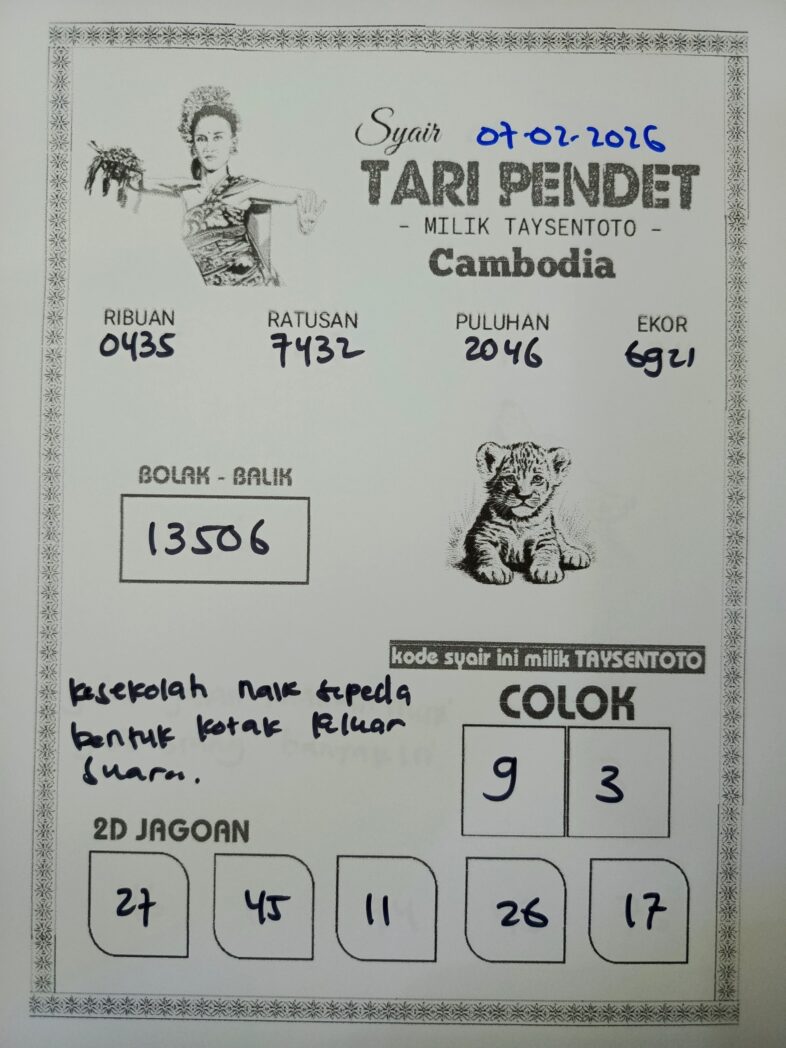 Syair 07-02-2026
TARI PENDET
- MILIK TAYSENTOTO -
Cambodia
RIBUAN RATUSAN PULUHAN EKOR
0435 7432 2046 6921
BOLAK - BALIK
13506
kode syair ini milik TAYSENTOTO
kesekolah naik sepeda
bentuk kotak keluar
suara.
COLOK
9 3
2D JAGOAN
27 45 11 26 17